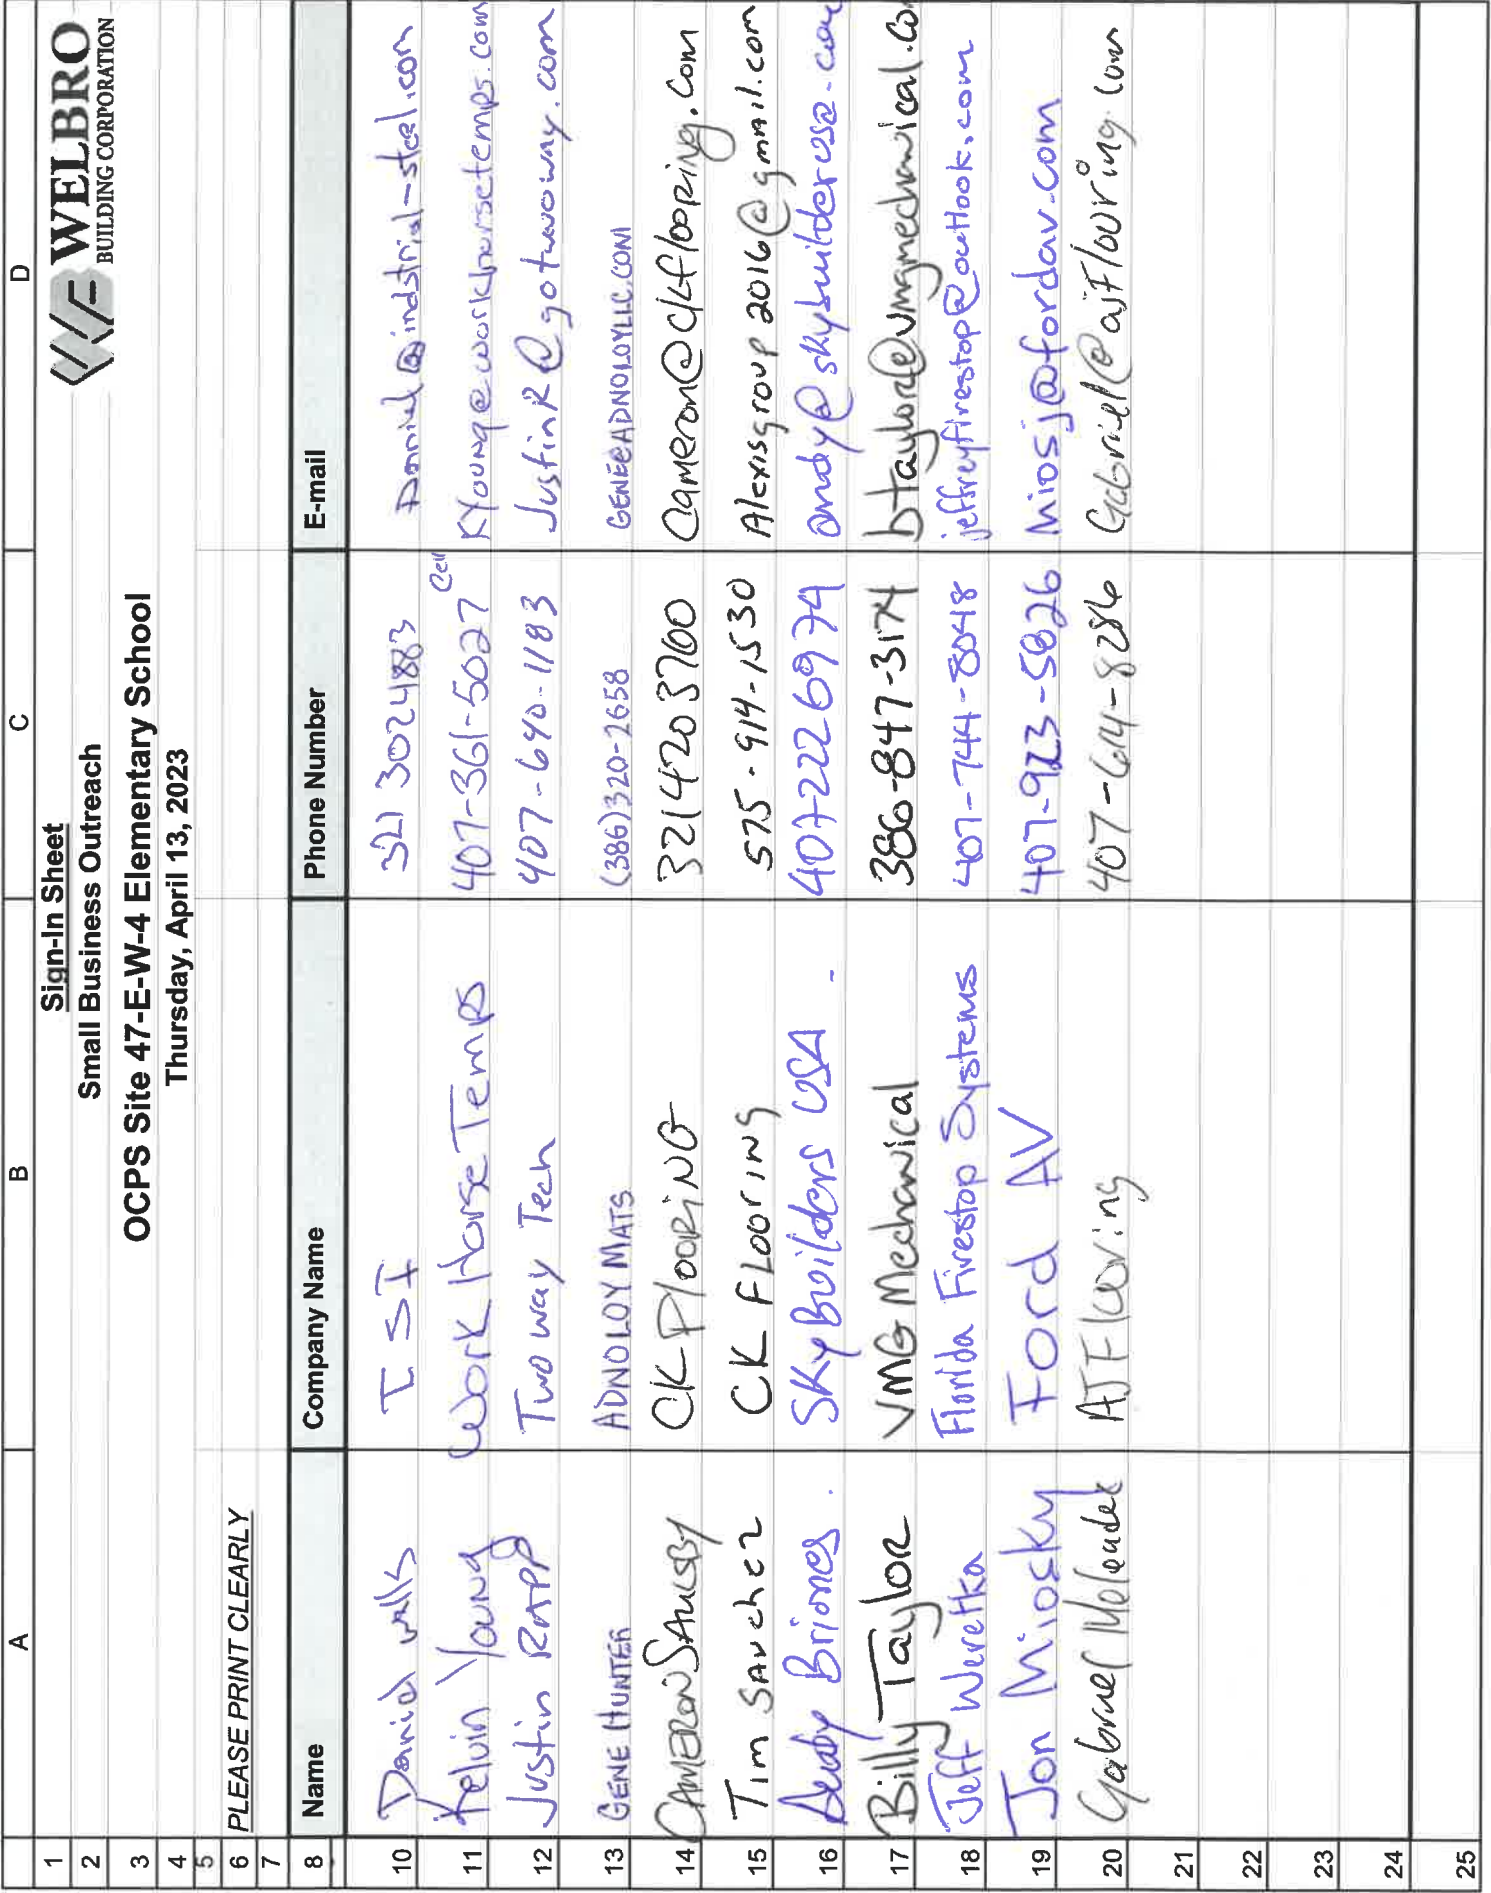 A B C D
1 Sign-In Sheet
WELBRO
BUILDING CORPORATION
2 Small Business Outreach
3 OCPS Site 47-E-W-4 Elementary School
4 Thursday, April 13, 2023
5
6 PLEASE PRINT CLEARLY
7
8 Name Company Name Phone Number E-mail
10 Daniel Walls ISI 321 302 4883 Daniel@indstrial-steel.com
11 Kelvin Young Work Horse Temps 407-361-5027 Cell KYoung@workhorsetemps.com
12 Justin RAPP Two way Tech 407-640-1183 JustinR@gotwoway.com
13 GENE HUNTER ADNOLOY MATS (386)320-2658 GENE@ADNOLOYLLC.COM
14 CAMERON SAULSBY CK FlOORiNG 3214203700 Cameron@ckflooring.com
15 Tim SANchez CK FLOORING 575-914-1530 Alexisgroup2016@gmail.com
16 Andy Briones. SkyBuilders USA - 4072226974 andy@skybuilderusa.com
17 Billy Taylor VMG Mechanical 386-847-3174 btaylor@vmgmechanical.co
18 Jeff Weretka Florida Firestop Systems 407-744-8048 jeffreyfirestop@outlook.com
19 Jon Miosky Ford AV 407-923-5826 Miosj@fordav.com
20 Gabriel AJ Flooring 407-614-8286 Gabriel@ajflooring.com
21
22
23
24
25